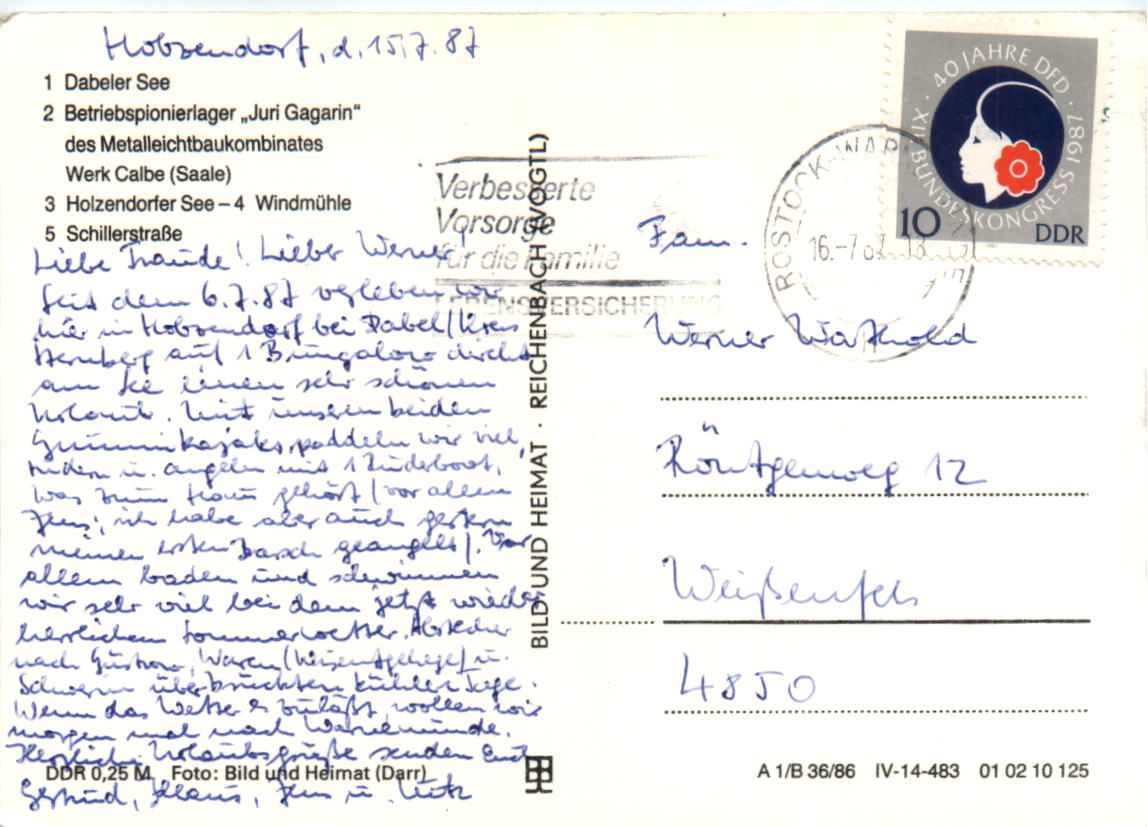 Holzendorf, d. 15.7.87
1 Dabeler See
2 Betriebspionierlager „Juri Gagarin“
des Metalleichtbaukombinates
Werk Calbe (Saale)
3 Holzendorfer See – 4 Windmühle
5 Schillerstraße
Liebe Traude! Lieber Werner!
Seit dem 6.7.87 verleben wir
hier in Holzendorf bei Dabel/Kreis
Sternberg auf 1 Bungalow direkt
am See einen sehr schönen
Urlaub. Mit unseren beiden
Gummikajaks paddeln wir viel,
rudern u. angeln mit 1 Ruderboot,
was zum Haus gehört (vor allem
Jens; ich habe aber auch gestern
meinen ersten Barsch geangelt). Vor
allem baden und schwimmen
wir sehr viel bei dem jetzt wieder
herrlichen Sommerwetter. Abstecher
nach Güstrow, Waren (Wisentgehege) u.
Schwerin überbrückten kühlere Tage.
Wenn das Wetter es zuläßt, wollen wir
morgen mal nach Warnemünde.
Herzliche Urlaubsgrüße senden Euch
Gertrud, Klaus, Jens u. Lutz
DDR 0,25 M Foto: Bild und Heimat (Darr)
BILD UND HEIMAT · REICHENBACH (VOGTL)
Verbesserte
Vorsorge
für die Familie
LEBENSVERSICHERUNG
ROSTOCK-WAR
16.-7.87 18
XII. BUNDESKONGRESS 1987 · 40 JAHRE DFD ·
10
DDR
Fam.
Werner
Röntgenweg 12
Weißenfels
4850
A 1/B 36/86 IV-14-483 01 02 10 125